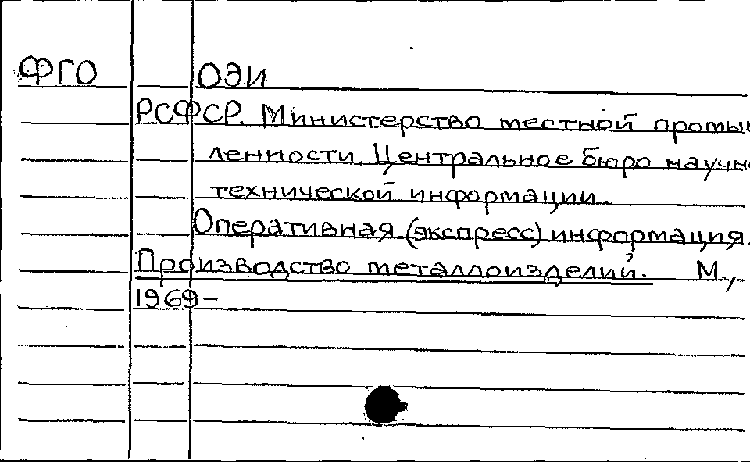 ФГО ОЭИ
РСФСР. Министерство местной промыш
ленности. Центральное бюро научно
технической информации.
Оперативная (экспресс) информация.
Производство металлоизделий. М.,
1969-